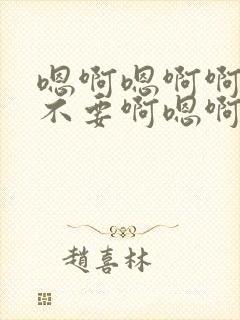 嗯啊嗯啊啊
不要啊嗯啊
趙喜林